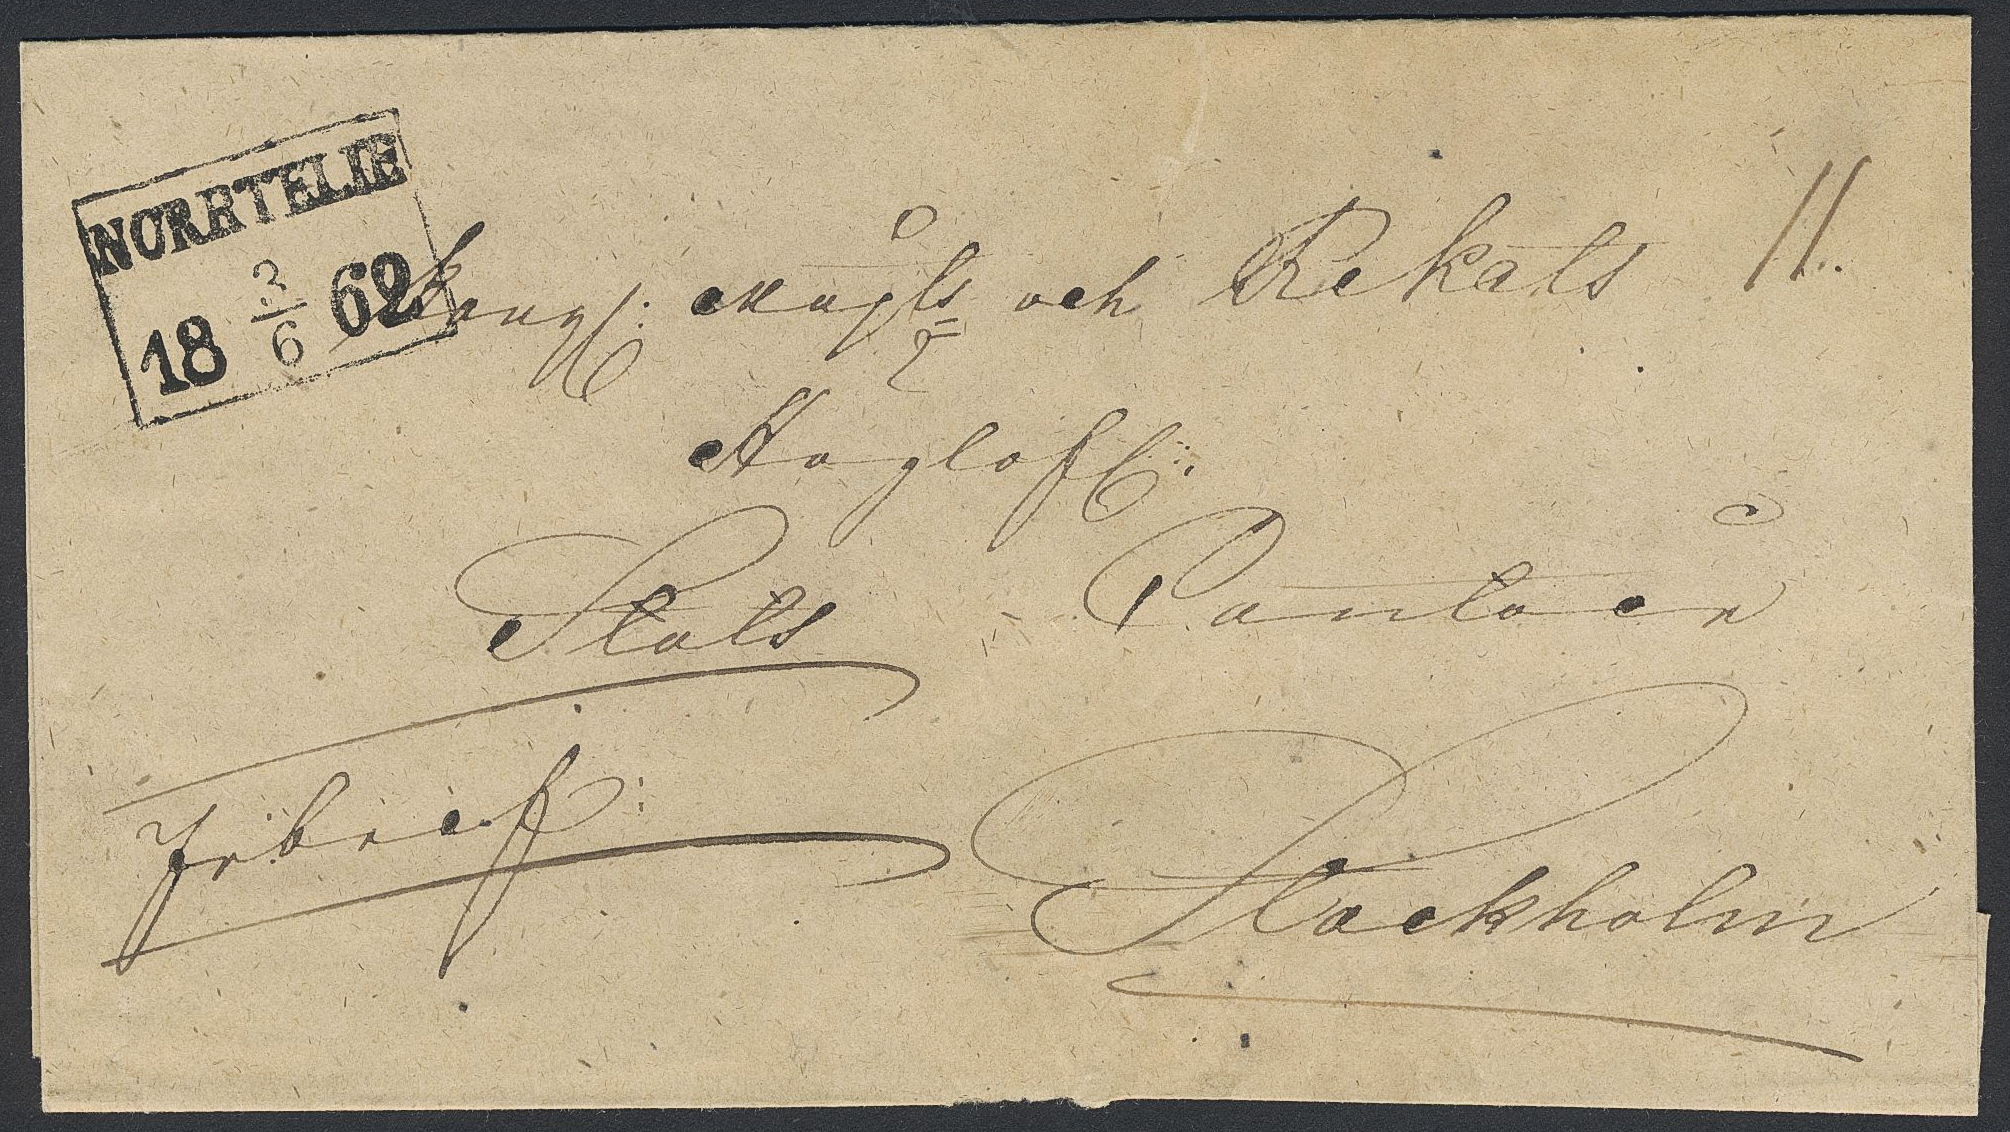 NORRTELIE
18 3/6 62
Kongl: Maj:ts och Rikets
Höglofl:
Stats - Contoir
Frbref:
Stockholm